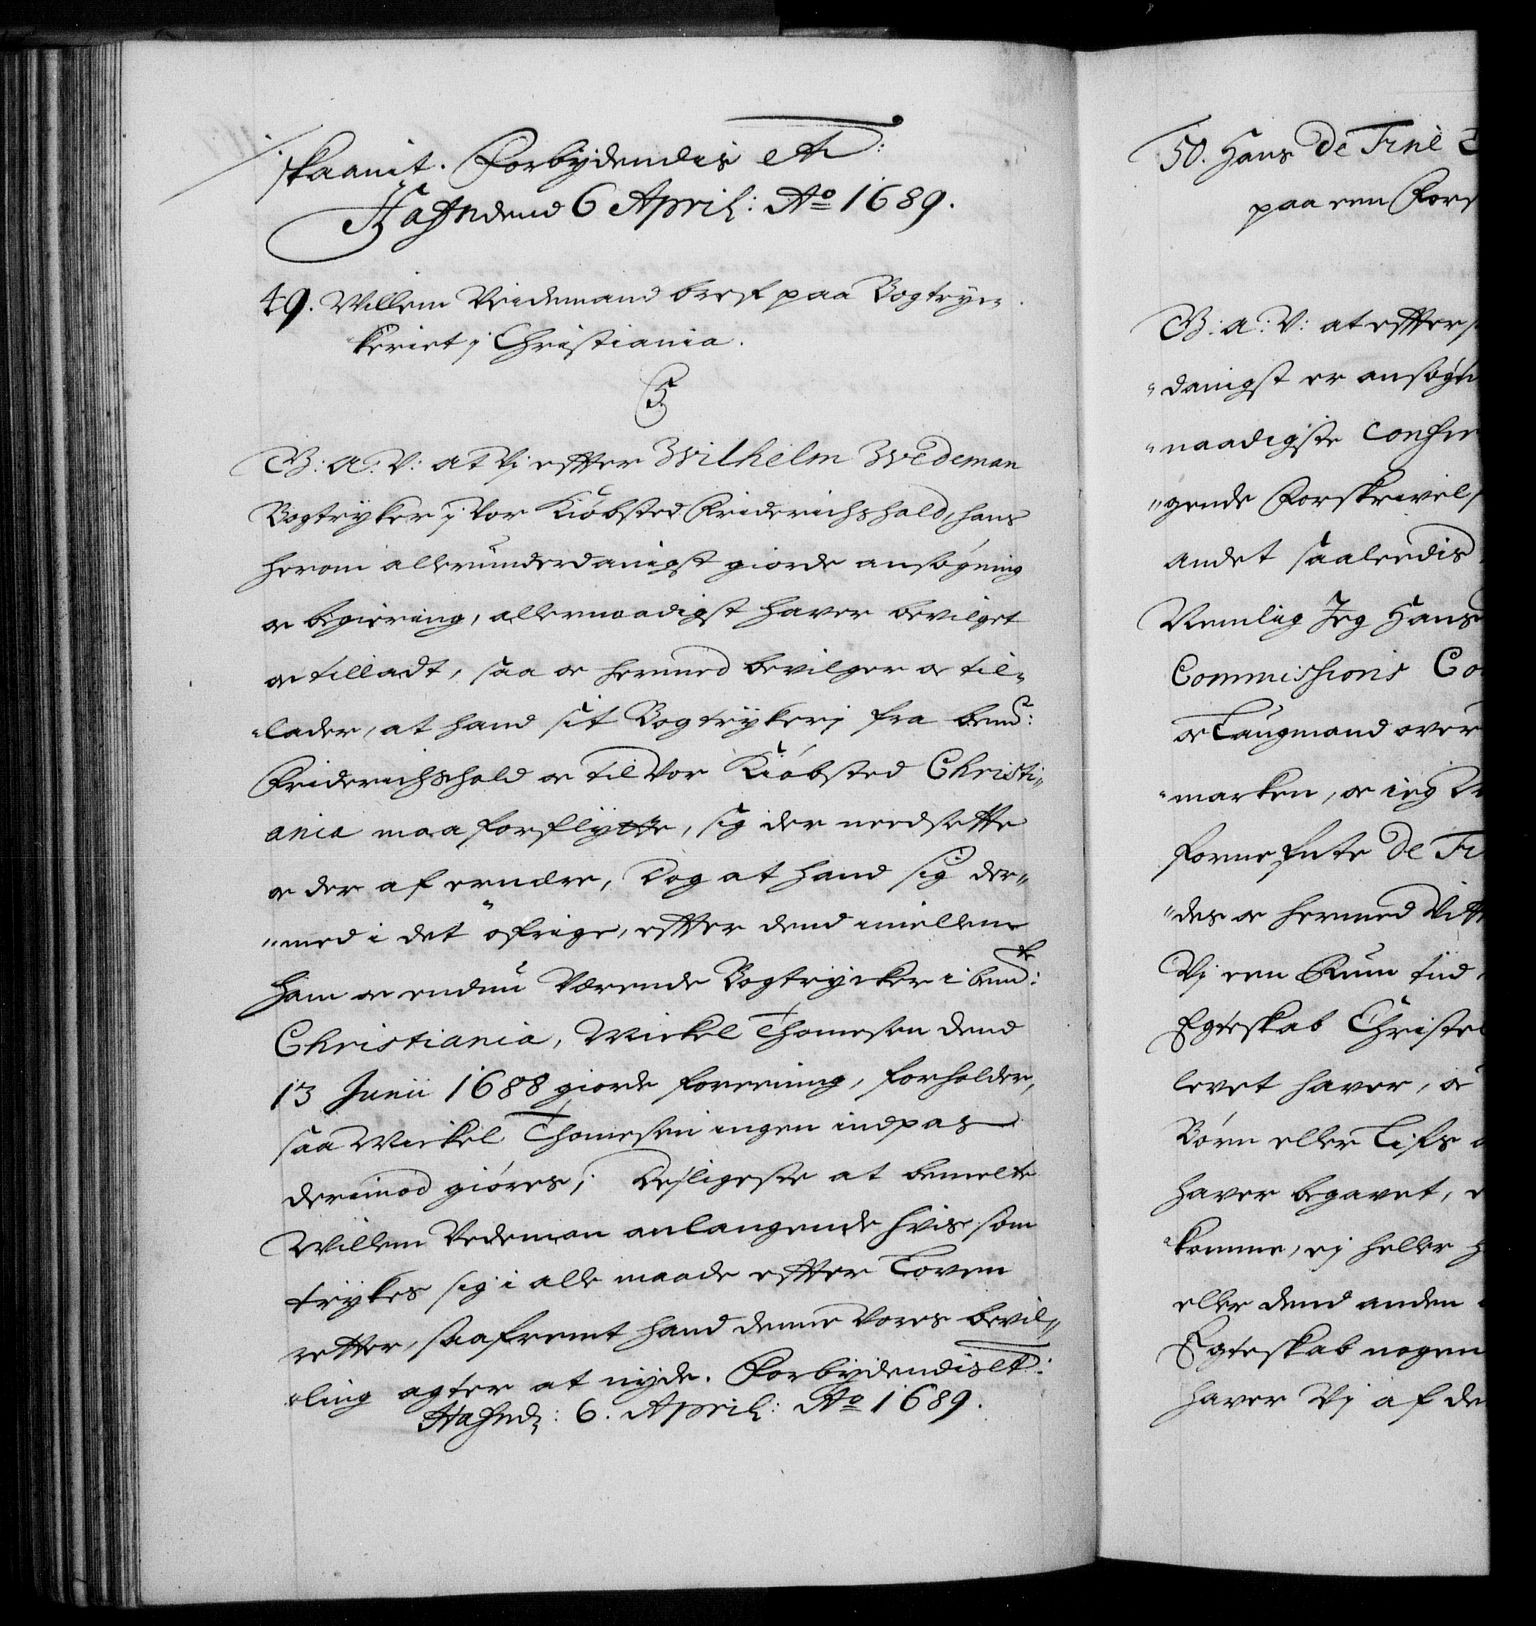 skaanit. Forbydendis etc:
Hafn dend 6 April: Ao 1689.
49. Willem Weidemand bref paa Bogtryc-
keriet i Christiania.
C5
G: a: V: at Vi effter Wilhelm Wedeman
Bogtryker i Vor Kiøbsted Friderichshald, hans
herom allerunderdanigst giorde ansøgning
oc begiering, allernaadigst hafver bevilget
oc tilladt, saa oc hermed bevilger oc til-
lader, at hand sit Bogtrykeri fra bemd:
Friderichshald oc til Vor Kiøbsted Christi-
ania maa forflytte, sig der needsette
oc der af ernære, Dog at hand sig der-
med i det øfrige, effter dend imellem
ham oc endnu Værende Bogtrycker i bemdte:
Christiania, Mickel Thomesen dend
13 Junii 1688 giorde foreening, forholder,
saa Mickel Thomesen ingen indpas
derimod giøres; Desligeste at bemelte
Willem Vedeman anlangende hvis som
trykes sig i alle maade effter Loven
retter, saafremt hand denne Vores bevil-
ling agter at nyde. Forbydendis etc:
Hafnd: 6. April: Ao 1689.
50. Hans de Fine
paa een Fors
G: a: V: at effter
danigst er ansøgn
naadigste Confir
gende Forskrivel
andet saaleedis
Nemlig Jeg Hans
Commissions Co
oc Laugmand over
marken, oc ieg
fornefnte de Fi
des oc hermed Vitt
Vi een Rum tiid
Egteskab Christel
levet hafver, oc
Børn eller Lifs
hafver begavet,
komme, ej heller
eller dend anden
Egteskab nogen
hafver Vi af de